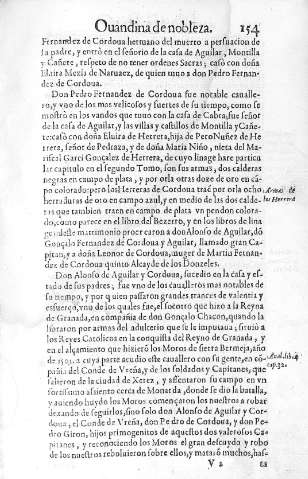 Quandina de nobleza. 154
Fernandez de Cordoua hermano del muerto a persuacion de
su padre, y entrò en el señorio de la casa de Aguilar, Montilla
y Cañete, respeto de no tener ordenes Sacras; casò con doña
Eluira Mexia de Naruaez, de quien vuo a don Pedro Fernan-
dez de Cordoua.
Don Pedro Fernandez de Cordoua fue notable caualle-
ro, y vno de los mas velicosos y fuertes de su tiempo, como se
mostrò en los vandos que tuuo con la casa de Cabra, fue señor
de la casa de Aguilar, y las villas y castillos de Montilla y Cañe-
te: casò con doña Eluira de Herrera, hija de Pero Nuñez de He-
rrera, señor de Pedraza, y de doña Maria Niño, nieta del Ma-
riscal Garci Gonçalez de Herrera, de cuyo linage hare partiu
lar capitulo en el segundo Tomo, son sus armas, dos calderas
negras en campo de plata, y por orla otras doze de oro en cã-
po colorado: pero los Herreras de Cordoua traẽ por orla ocho
herraduras de oro en campo azul, y en medio de las dos calde-
ras que tambien traen en campo de plata vn pendon colora-
do, como parece en el libro del Bezerro, y en los libros de lina
ges deste matrimonio procrearon a don Alonso de Aguilar, dõ
Gonçalo Fernandez de Cordoua y Aguilar, llamado gran Ca-
pitan, y a doña Leonor de Cordoua, muger de Martin Fernan-
dez de Cordoua quinto Alcayde de los Donzeles.
Don Alonso de Aguilar y Cordoua, sucedio en la casa y es-
tado de sus padres, fue vno de los caualleros mas notables de
su tiempo, y por quien passaron grandes trances de valentia y
esfuerço, vno de los quales fue, el socorro que hizo a la Reyna
de Granada, en compañia de don Gonçalo Chacon, quando la
libraron por armas del adulterio que se le imputaua; siruiò a
los Reyes Catolicos en la conquista del Reyno de Granada, y
en el alçamiento que hizierõ los Moros de sierra Bermeja, año
de 1501. a cuya parte acudio este cauallero con su gente, en cõ-
pañia del Conde de Vreña, y de los soldados y Capitanes, que
salieron de la ciudad de Xerez, y assentaron su campo en vn
fortissimo assiento cerca de Monarda, donde se dio la batalla,
y auiendo huydo los Moros començaron los nuestros a robar
dexando de seguirlos, sino solo don Alonso de Aguilar y Cor-
doua, el Conde de Vreña, don Pedro de Cordoua, y don Pe-
dro Giron, hijos primogenitos de aquestos dos valerosos Ca-
pitanes, y reconociendo los Moros el gran descuydo y robo
de los nuestros reboluieron sobre ellos, y matarõ muchos, has-
V 2 ta
Armas de
los Herrera
cap. 32.